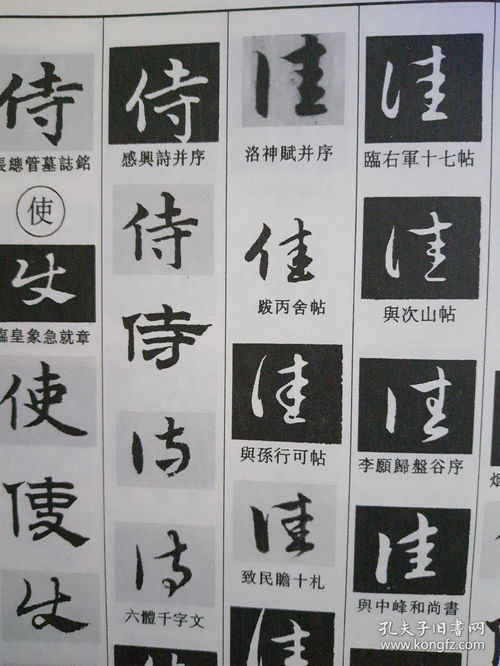 佳
臨右軍十七帖
佳
與次山帖
佳
李願歸盤谷序
佳
與中峰和尚書
佳
洛神賦并序
佳
跋丙舍帖
佳
與孫行可帖
佳
致民瞻十札
侍
感興詩并序
侍
侍
侍
侍
六體千字文
侍
總管墓誌銘
使
使
臨皇象急就章
使
使
使
孔夫子旧书网
www.kongfz.com